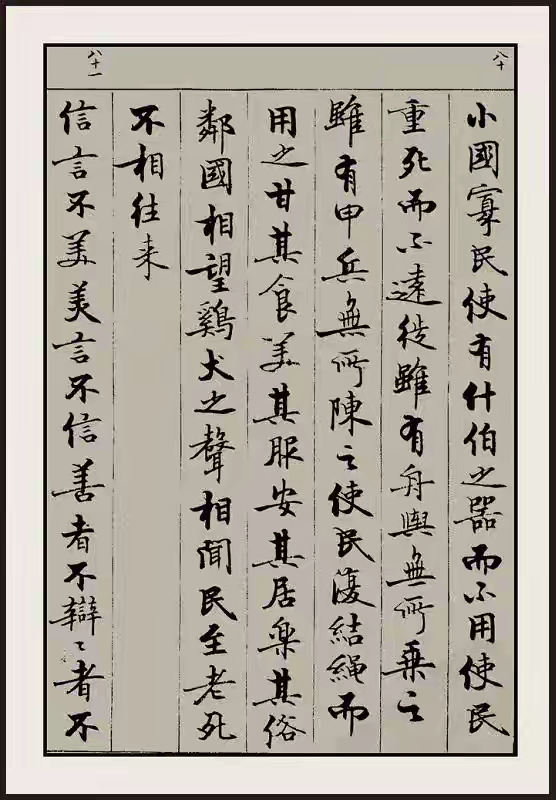 八十
小國寡民使有什伯之器而不用使民
重死而不遠徙雖有舟輿無所乘之
雖有甲兵無所陳之使民復結繩而
用之甘其食美其服安其居樂其俗
鄰國相望鷄犬之聲相聞民至老死
不相往来
八十一
信言不美美言不信善者不辯〻者不